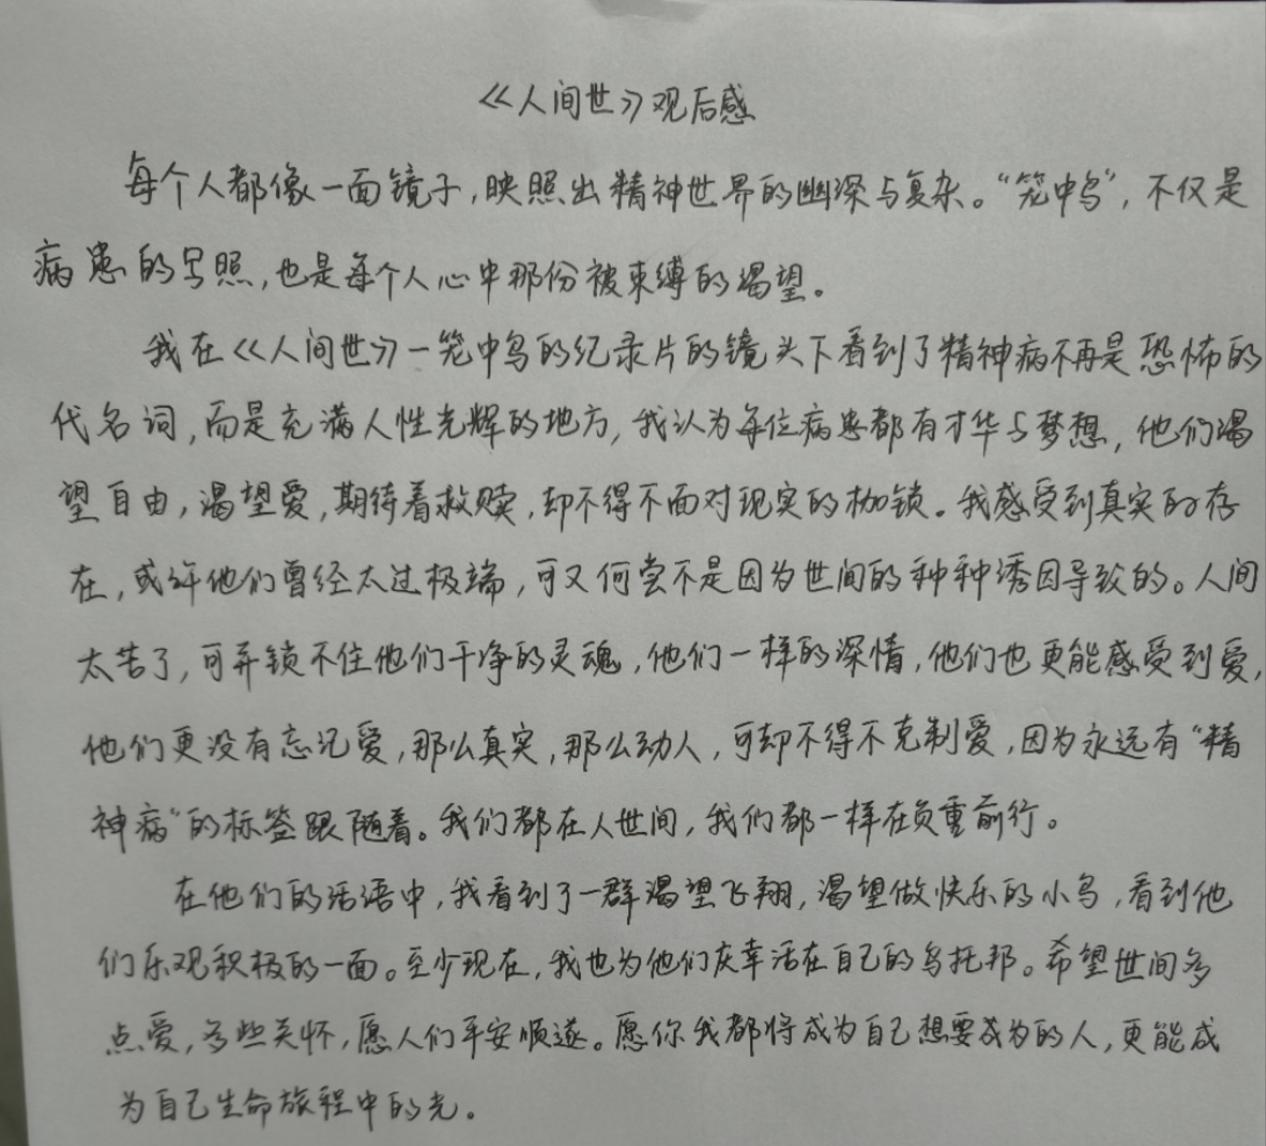 《人间世》观后感
每个人都像一面镜子,映照出精神世界的幽深与复杂。“笼中鸟”,不仅是
病患的写照,也是每个人心中那份被束缚的渴望。
我在《人间世》—笼中鸟的纪录片的镜头下看到了精神病不再是恐怖的
代名词,而是充满人性光辉的地方,我认为每位病患都有才华与梦想,他们渴
望自由,渴望爱,期待着救赎,却不得不面对现实的枷锁。我感受到真实的存
在,或许他们曾经太过极端,可又何尝不是因为世间的种种诱因导致的。人间
太苦了,可弄锁不住他们干净的灵魂,他们一样的深情,他们也更能感受到爱,
他们更没有忘记爱,那么真实,那么动人,可却不得不克制爱,因为永远有“精
神病”的标签跟随着。我们都在人世间,我们都一样在负重前行。
在他们的话语中,我看到了一群渴望飞翔,渴望做快乐的小鸟,看到他
们乐观积极的一面。至少现在,我也为他们庆幸活在自己的乌托邦。希望世间多
点爱,多些关怀,愿人们平安顺遂。愿你我都将成为自己想要成为的人,更能成
为自己生命旅程中的光。